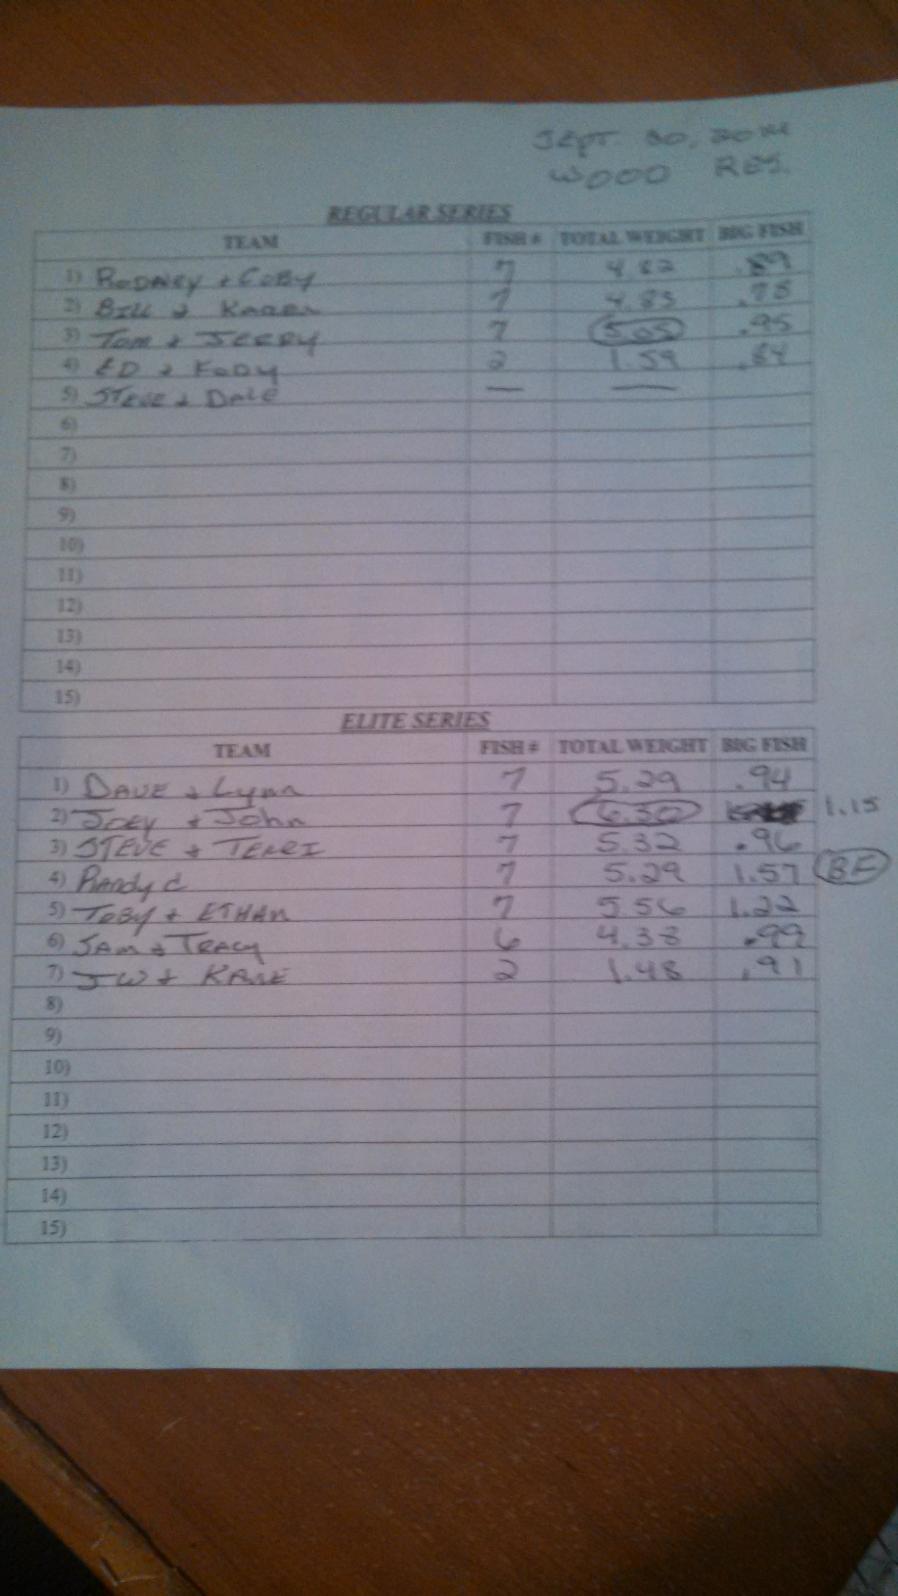 SEPT. 20, 2014
WOOD RES.
REGULAR SERIES
TEAM FISH # TOTAL WEIGHT BIG FISH
1) RODNEY + COBY 7 4.82 .89
2) BILL + KAREN 7 4.83 .78
3) TOM + JERRY 7 5.05 .95
4) ED + KODY 2 1.59 .84
5) STEVE + DALE — —
6)
7)
8)
9)
10)
11)
12)
13)
14)
15)
ELITE SERIES
TEAM FISH # TOTAL WEIGHT BIG FISH
1) DAVE + Lynn 7 5.29 .94
2) JOEY + John 7 6.30 1.15
3) STEVE + TERRI 7 5.32 .96
4) Randy C 7 5.29 1.57 BF
5) TOBY + ETHAN 7 5.56 1.22
6) SAM + TRACY 6 4.38 .99
7) JW + KANE 2 1.48 .91
8)
9)
10)
11)
12)
13)
14)
15)